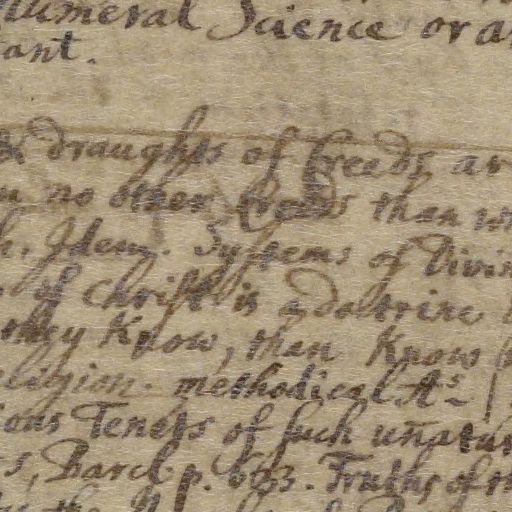 Numeral Science or a
ant.
& draughts of Creeds ar
no other Creeds than w
Idem. Systems of Divin
of Christ is a doctrine
they Know, than Know
eligion. methodical A
ions Tenets of such unatur
s, Barcl. p. 683. Truths of